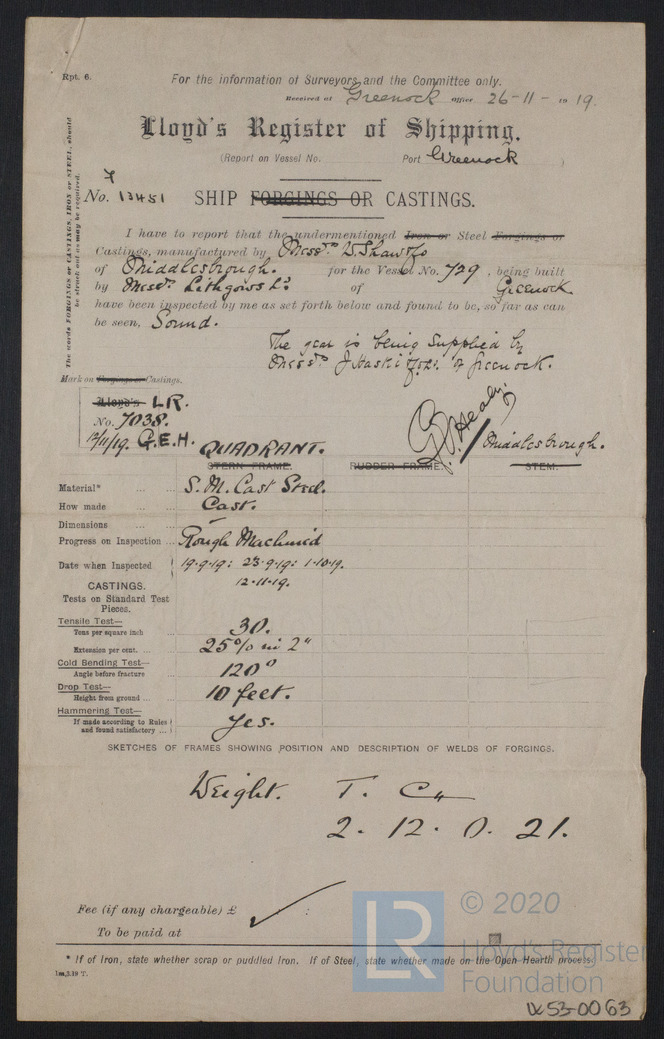 Rpt. 6.
For the information of Surveyors and the Committee only.
Received at Greenock Office 26-11-1919.
Lloyd's Register of Shipping.
(Report on Vessel No. Port Greenock )
The words FORGINGS or CASTINGS, IRON or STEEL, should
be struck out as may be required.
F
No. 13451 SHIP FORGINGS OR CASTINGS.
I have to report that the undermentioned Iron or Steel Forgings or
Castings, manufactured by Messrs W. Shaw & Co
of Middlesbrough. for the Vessel No. 729, being built
by Messrs. Lithgows Ld. of Greenock
have been inspected by me as set forth below and found to be, so far as can
be seen, Sound.
The gear is being supplied by
Messrs J Hastie & Co. Ld. of Greenock.
Mark on Forgings or Castings.
Lloyd's LR.
No. 7038.
12/11/19. G.E.H.
Healy
Middlesbrough.
QUADRANT.
STERN FRAME. RUDDER FRAME. STEM.
Material* ... ... S. M. Cast Steel.
How made ... Cast.
Dimensions ... ... –
Progress on Inspection ... Rough Machined
Date when Inspected 19.9.19: 23.9.19: 1.10.19.
12.11.19.
CASTINGS.
Tests on Standard Test
Pieces.
Tensile Test—
Tons per square inch ... 30.
Extension per cent. ... ... 25% in 2"
Cold Bending Test—
Angle before fracture ... 120°
Drop Test—
Height from ground ... ... 10 feet.
Hammering Test—
If made according to Rules
and found satisfactory ... Yes.
SKETCHES OF FRAMES SHOWING POSITION AND DESCRIPTION OF WELDS OF FORGINGS.
Weight. T. C
2. 12. 0. 21.
Fee (if any chargeable) £ ✓ :
To be paid at
* If of Iron, state whether scrap or puddled Iron. If of Steel, state whether made on the Open Hearth process.
1m,3.19 T.
LR
© 2020
Lloyd's Register
Foundation
W53-0063